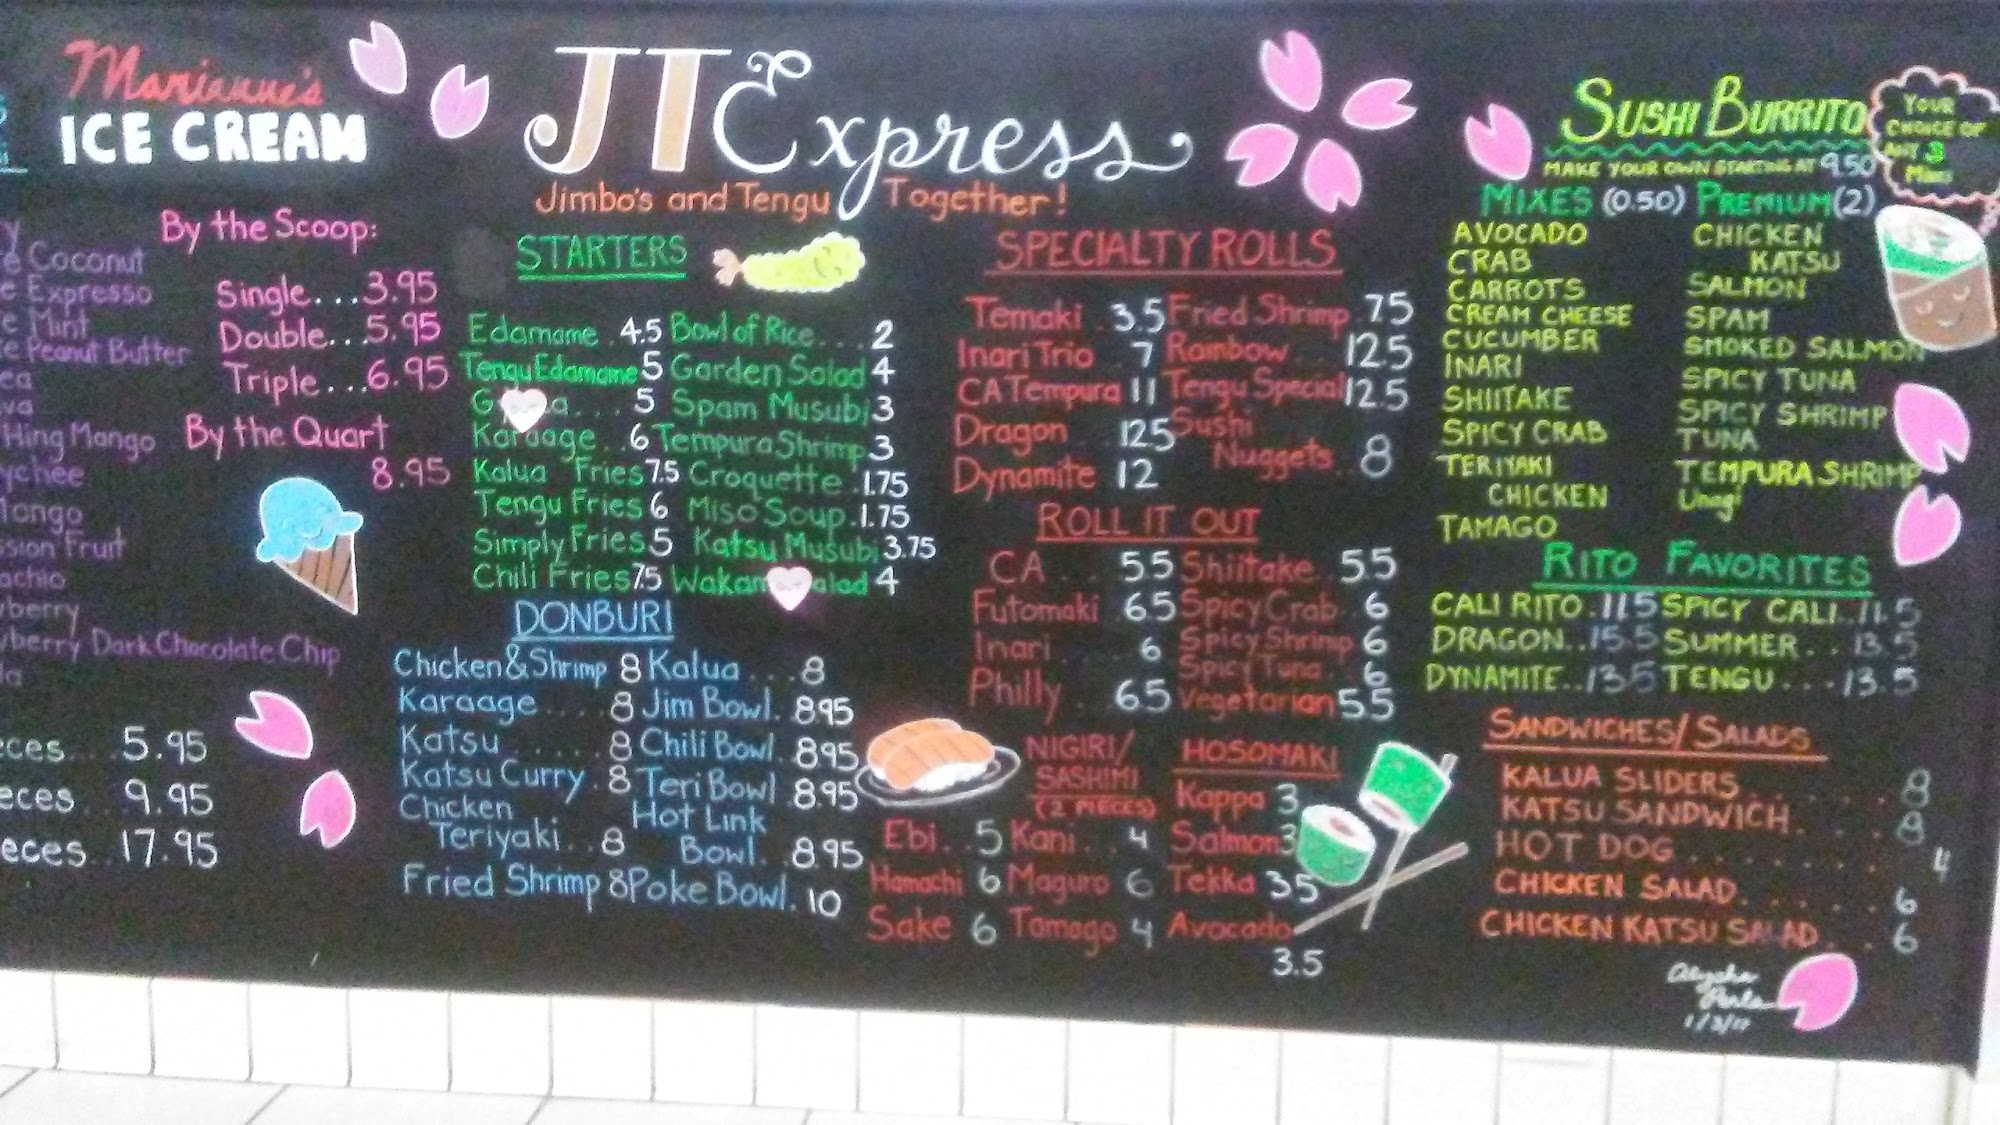 Marianne's
ICE CREAM
Coconut
Expresso
Mint
Peanut Butter
Thing Mango
Fruit
Dark Chocolate Chip
By the Scoop:
Single...3.95
Double...5.95
Triple...6.95
By the Quart
8.95
5.95
9.95
17.95
JT Express
Jimbo's and Tengu Together!
STARTERS
Edamame .4.5 Bowl of Rice...2
Tengu Edamame 5 Garden Salad 4
... 5 Spam Musubi 3
Karaage..6 Tempura Shrimp.3
Kalua Fries 7.5 Croquette.1.75
Tengu Fries 6 Miso Soup.1.75
Simply Fries 5 Katsu Musubi 3.75
Chili Fries 7.5 4
DONBURI
Chicken & Shrimp 8 Kalua...8
Karaage....8 Jim Bowl.8.95
Katsu.....8 Chili Bowl.8.95
Katsu Curry.8 Teri Bowl.8.95
Chicken Hot Link
Teriyaki..8 Bowl..8.95
Fried Shrimp 8 Poke Bowl.10
SPECIALTY ROLLS
Temaki 3.5 Fried Shrimp 7.5
Inari Trio 7 Rainbow 12.5
CA Tempura 11 Tengu Special 12.5
Dragon 12.5 Sushi
Nuggets 8
Dynamite 12
ROLL IT OUT
CA 5.5 Shiitake 5.5
Futomaki 6.5 Spicy Crab 6
Inari 6 Spicy Shrimp 6
Spicy Tuna 6
Philly 6.5 Vegetarian 5.5
NIGIRI/
SASHIMI
(2 PIECES)
Ebi..5 Kani..4
Hamachi 6 Maguro 6
Sake 6 Tamago 4
HOSOMAKI
Kappa 3
Salmon 3
Tekka 3.5
Avocado
3.5
SUSHI BURRITO
MAKE YOUR OWN STARTING AT 9.50
YOUR
CHOICE OF
ANY 3
Mixes
MIXES (0.50) PREMIUM (2)
AVOCADO
CRAB
CARROTS
CREAM CHEESE
CUCUMBER
INARI
SHIITAKE
SPICY CRAB
TERIYAKI
CHICKEN
TAMAGO
CHICKEN
KATSU
SALMON
SPAM
SMOKED SALMON
SPICY TUNA
SPICY SHRIMP
TUNA
TEMPURA SHRIMP
Unagi
RITO FAVORITES
CALI RITO.11.5 SPICY CALI..11.5
DRAGON..15.5 SUMMER...13.5
DYNAMITE..13.5 TENGU...13.5
SANDWICHES/SALADS
KALUA SLIDERS 8
KATSU SANDWICH 8
HOT DOG 4
CHICKEN SALAD 6
CHICKEN KATSU SALAD 6
1/3/17